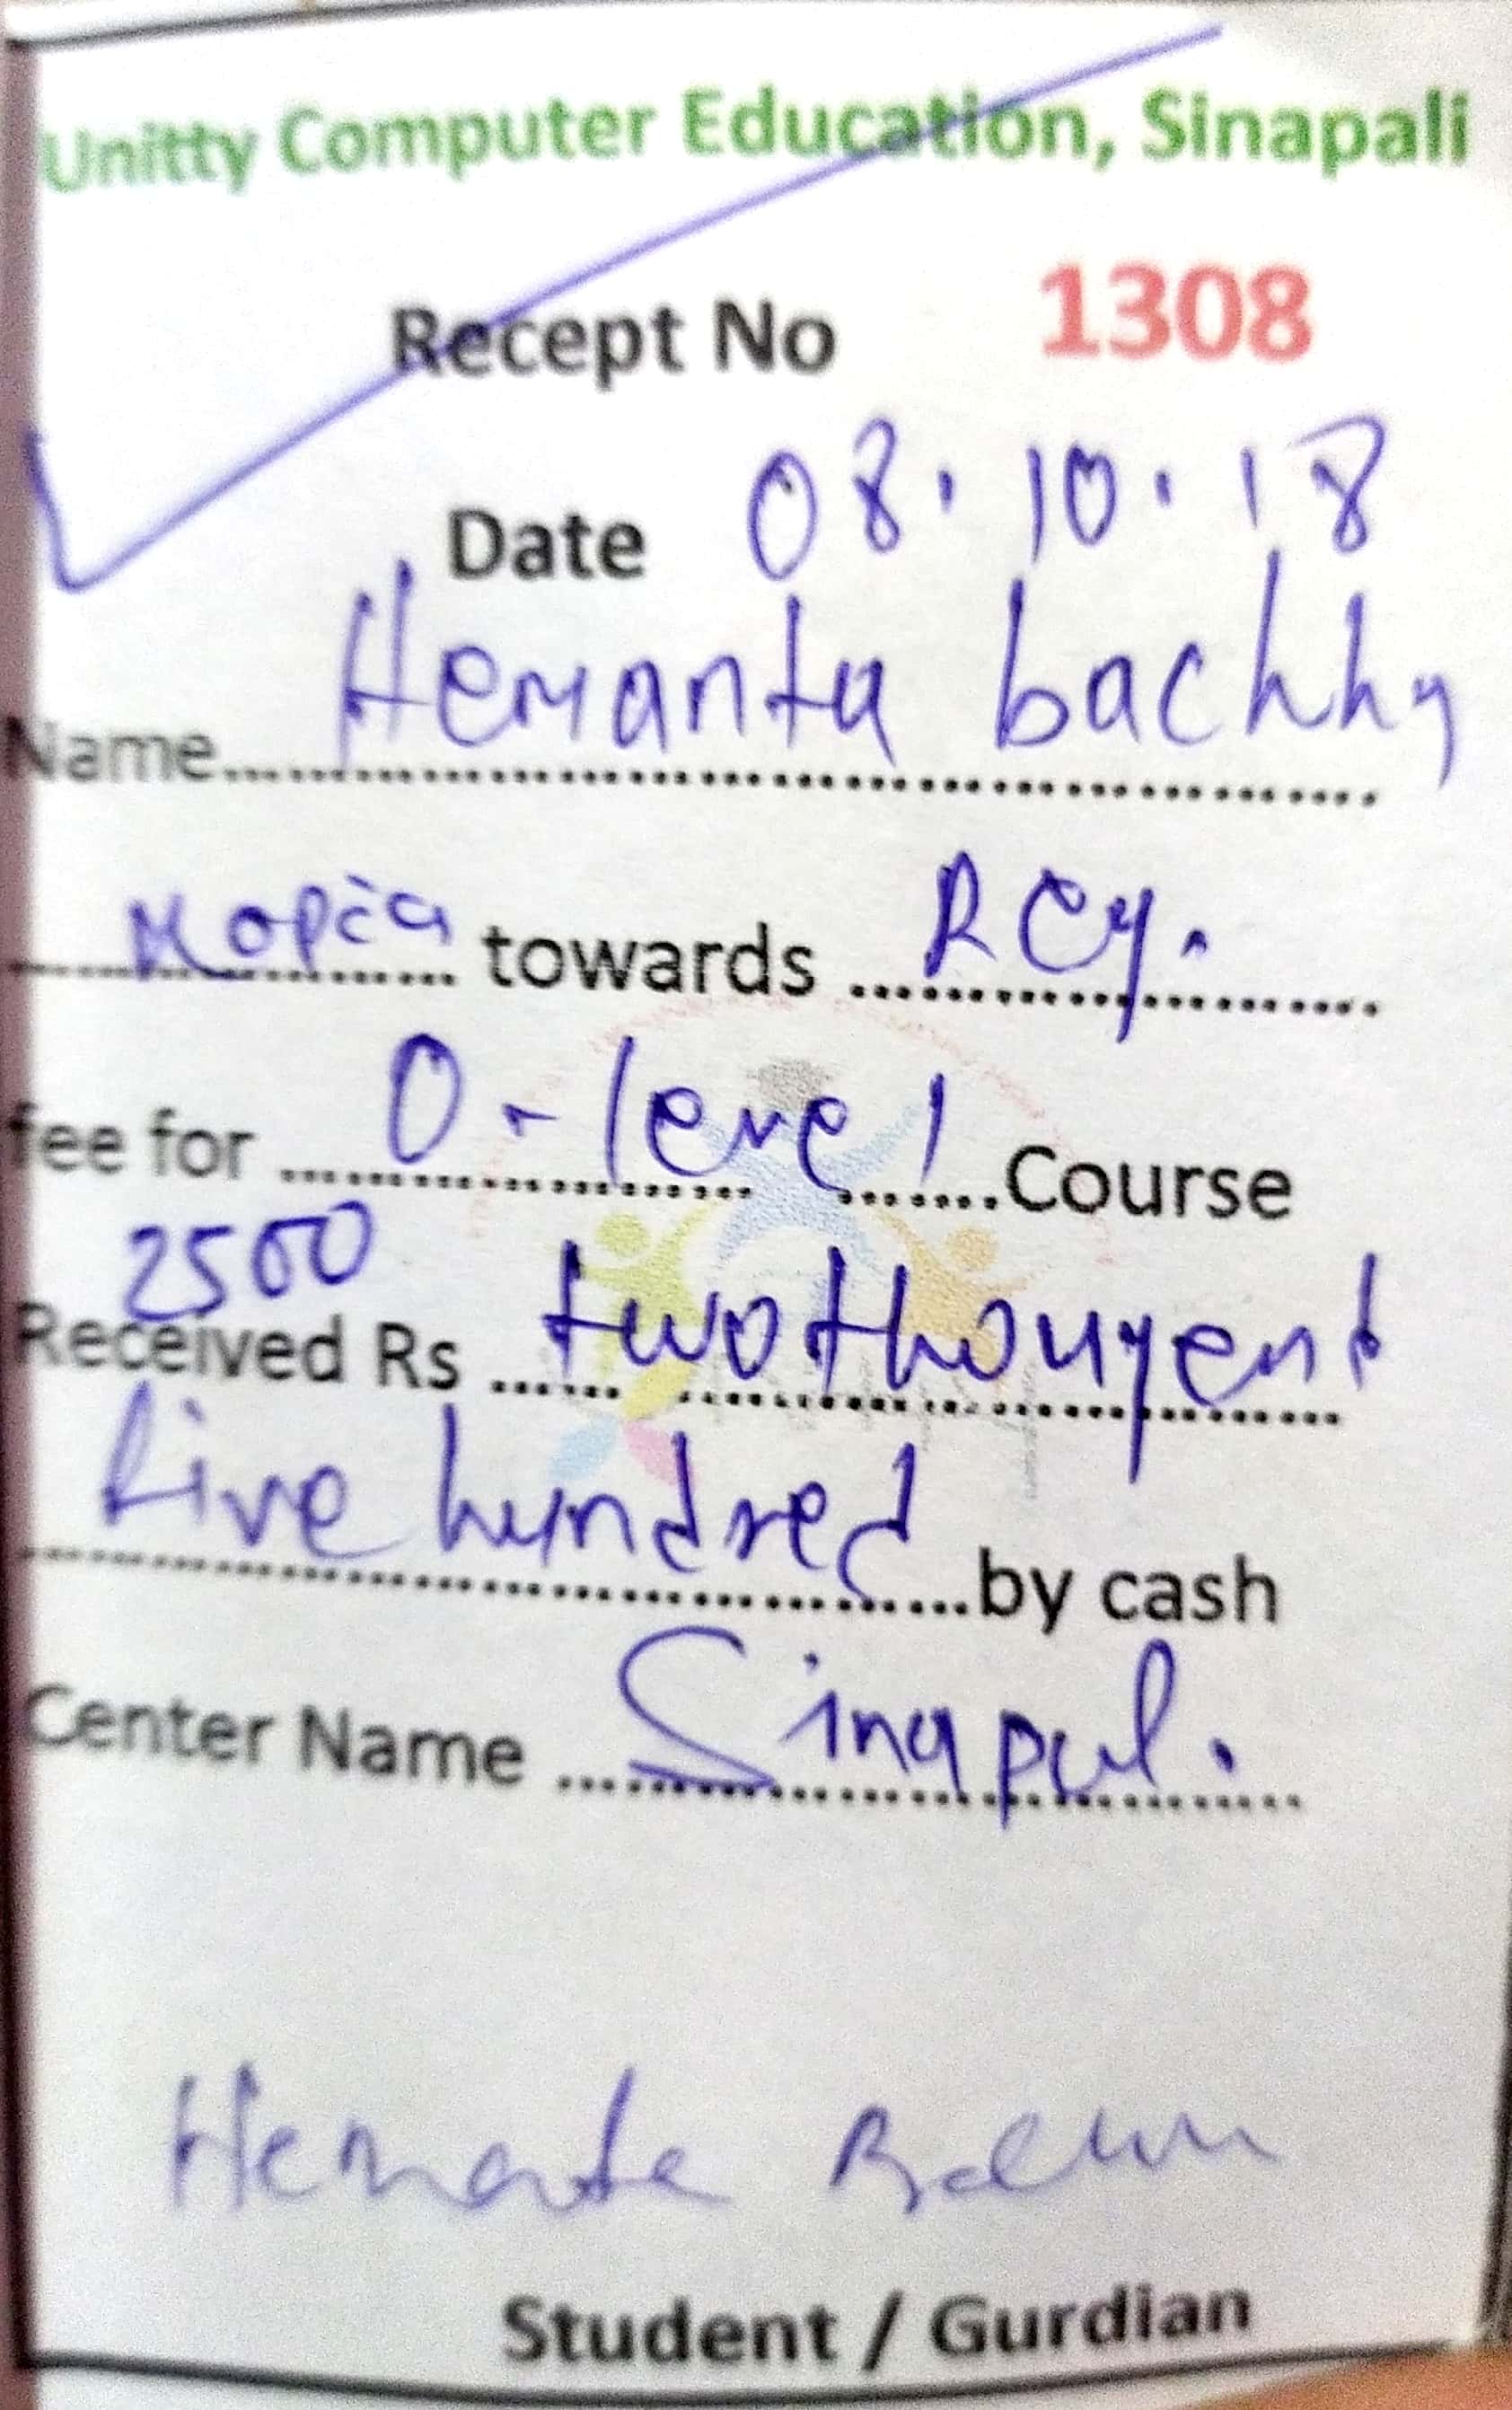 Unitty Computer Education, Sinapali
Recept No 1308
Date 08.10.18
Name Hemanta bachha
towards Reg.
fee for O-level Course
2500
Received Rs two thougent
five hundred by cash
Center Name Sinapal.
Hemanta
Student / Gurdian